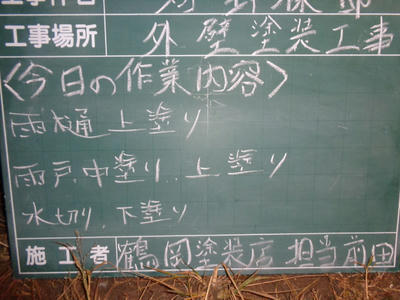 工事件名
工事場所 外壁塗装工事
<今日の作業内容>
雨樋 上塗り
雨戸.中塗り.上塗り
水切り.下塗り
施工者 鶴岡塗装店 担当前田